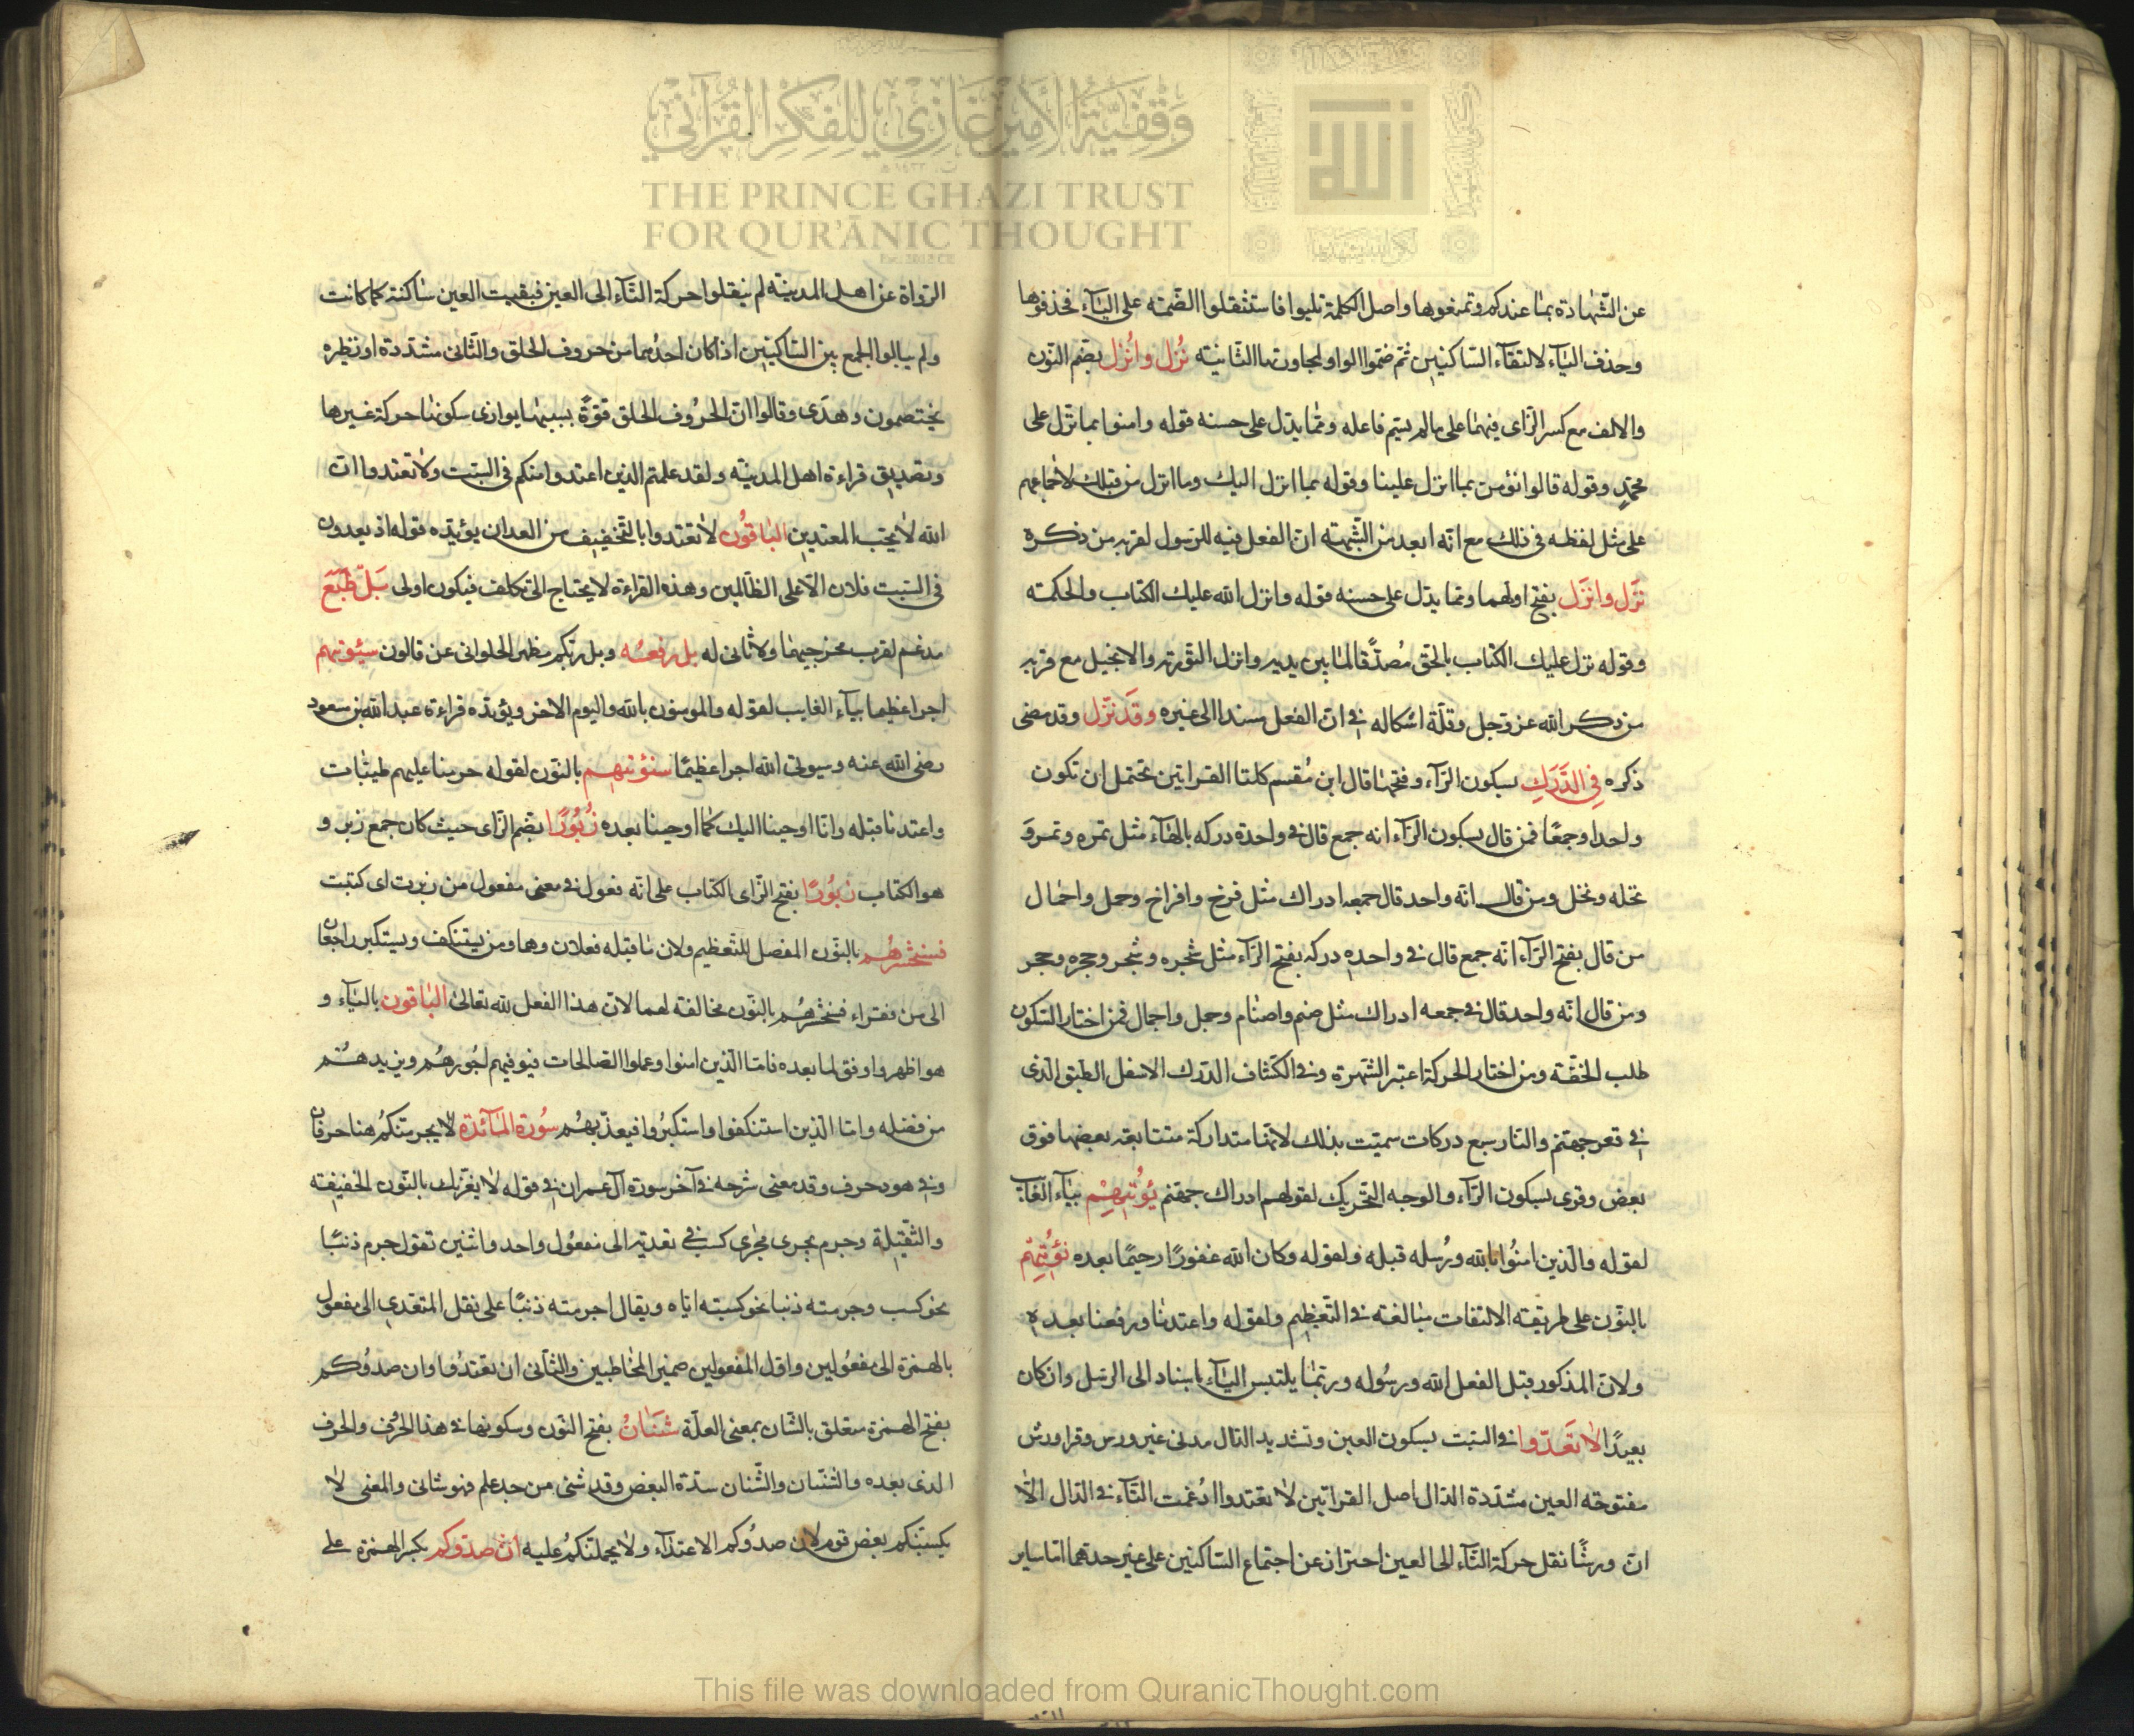 وقفية الأمير غازي للفكر القرآني
THE PRINCE GHAZI TRUST
FOR QUR'ĀNIC THOUGHT
عن الشهادة بما عندكم وتمنعوها واصل الكلمة تليوا فاستثقلوا الضمة على الياء فحذفوها
وحذف الياء لالتقاء الساكنين ثم ضموا الواو لمجاورتها الثانية نُزل وانُزل بضم النون
والالف مع كسر الزاى فيهما على مالم يسم فاعله ومما يدل على حسنه قوله وامنوا بما نزل على
محمد وقوله قالوا نؤمن بما انزل علينا وقوله بما انزل اليك وما انزل من قبلك لاجماعهم
على مثل لفظه فى ذلك مع انه ابعد من الشبهة ان الفعل فيه للرسول لقربه من ذكره
نَزل وانزَل بفتح اولهما ومما يدل على حسنه قوله وانزل الله عليك الكتاب والحكمة
وقوله نزل عليك الكتاب بالحق مُصدقا لما بين يديه وانزل التورية والانجيل مع قربه
من ذكر الله عز وجل وقلة اشكاله فى ان الفعل مسندا الى غيره وقَد نزل وقد مضى
ذكره فِى الدَّرَكِ بسكون الراء وفتحها قال ابن مُقسم كلتا القراتين تحتمل ان تكون
واحدا وجمعًا فمن قال بسكون الراء انه جمع قال فى واحدة دركه بالهاء مثل تمره وتمر و
نخله ونخل ومن قال انه واحد قال جمعه ادراك مثل فرخ وافراخ وحمل واحمال
من قال بفتح الراء انه جمع قال فى واحده دركه بفتح الراء مثل شجره وشجر وحجره وحجر
ومن قال انه واحد قال فى جمعه ادراك مثل صنم واصنام وجبل واجبال فمن اختار السكون
طلب الخفة ومن اختار الحركة اعتبر الشهرة وفى الكشاف الدرك الاسفل الطبق الذى
فى قعر جهنم والنار سبع دركات سميت بذلك لانها متداركة متتابعة بعضها فوق
بعض وقرى بسكون الراء والوجه التحريك لقولهم ادراك جهنم يُؤتيهِمْ بياء الغائب
لقوله والذين امنُوا بالله ورُسله قبله ولقوله وكان الله غفورًا رحيمًا بعده نؤتيهم
بالنون على طريقة الالتفات مبالغة فى التعظيم ولقوله واعتدنا ورفعنا بعده
ولان المذكور قبل الفعل الله ورسُوله وربما يلتبس الياء باسناد الى الرسل وان كان
بعيدًا لا تَعَدّوا فى السبت بسكون العين وتشديد الدال مدنى غير ورش وقرا ورش
مفتوحة العين مشددة الدال اصل القراتين لا تعتدوا ادُغمت التاء فى الدال الا
ان ورشًا نقل حركة التاء الى العين احتراز عن اجتماع الساكنين على غير حدهما اما ساير
الرواة عن اهل المدينة لم ينقلوا حركة التاء الى العين فبقيت العين ساكنة كما كانت
ولم يبالوا الجمع بين الساكنين اذا كان احدُهما من حروف الحلق والثانى مشددة او نظيره
يختصمون وهدى وقالوا ان الحرُوف الحلق قوة بسببها يوازى سكونها حركة غيرها
وتصديق قراءة اهل المدينة ولقد علمتم الذين اعتدوا منكم فى السبت ولا تعتدوا ان
الله لا يحب المعتدين الباقُون لا تعتدوا بالتخفيف من العدان يؤيده قوله اذ يعدون
فى السبت فلان الا على الظالمين وهذه القراءة لا يحتاج الى تكلف فيكون اولى بَلْ طَبَعَ
مدغم لقرب مخرجيهما ولا ثانى له بل رفعه وبل ربكم مظهر الحلوانى عن قالون سيؤتيهم
اجرا عظيما بياء الغايب لقوله والمومنون بالله واليوم الاخر ويؤيده قراءة عبد الله بن مسعود
رضى الله عنه وسيوتى الله اجرا عظيمًا سنؤتيهم بالنون لقوله حرمنا عليهم طيبات
واعتدنا قبله وانا اوحينا اليك كما اوحينا بعده زُبُورًا بضم الزاى حيث كان جمع زبر و
هو الكتاب زبُورًا بفتح الزاى الكتاب على انه فعول فى معنى مفعول من زبرت اى كتبت
فسنحشرهُم بالنون المفصل للتعظيم ولان ما قبله فعلان وهما ومن يستنكف ويستكبر راجعان
الى من فقراء فسنحشرهُم بالنون مخالفة لهما لان هذا الفعل لله تعالى الباقون بالياء و
هو اظهر واوفق لما بعده فاما الذين امنوا وعملوا الصالحات فيوفيهم اجُورهُم ويزيدهُم
من فضله واما الذين استنكفوا واستكبرُوا فيعذبهُم سُورة المائدة لا يجرمنكم هنا حرفان
وفى هود حرف وقد مضى شرحه فى آخر سورة آل عمران فى قوله لا يغرنك بالنون الخفيفة
والثقيلة وجرم يجرى مجرى كسب فى تعديته الى مفعُول واحد واثنين تقول جرم ذنبًا
نحو كسب وجرمته ذنبا نحو كسبته اياه ويقال اجرمته ذنبًا على نقل المتعدى الى مفعول
بالهمزة الى مفعُولين واول المفعولين ضمير المخاطبين والثانى ان تعتدُوا وان صدُوكم
بفتح الهمزة متعلق بالشان بمعنى العلة شَنَاٰنُ بفتح النون وسكونها فى هذا الحرُف والحرف
الذى بعده والشنان والشنان شدة البغض وقد شنى من حد علم فهو شانى والمعنى لا
يكسبنكم بغض قوم لان صدُوكم الاعتداء ولا يحملنكمُ عليه ان صدوكم بكسر الهمزة على
This file was downloaded from QuranicThought.com